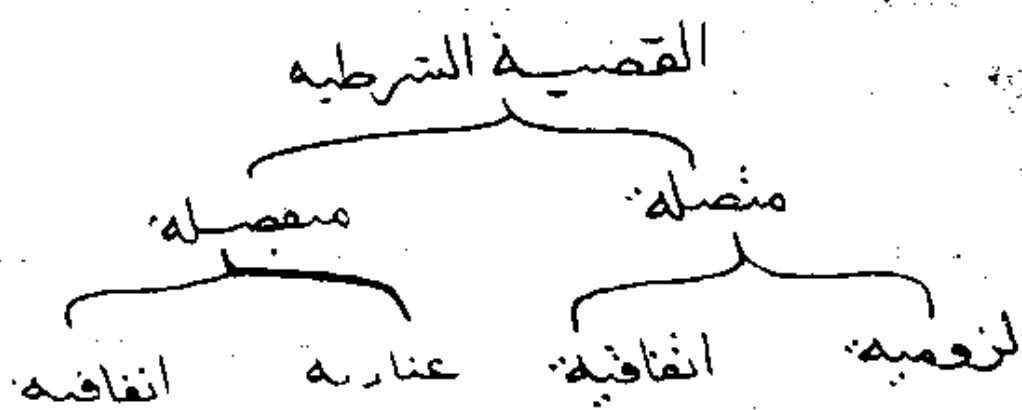 القضية الشرطيه
متصله منفصله
لزوميه اتفاقية عناديه اتفاقيه